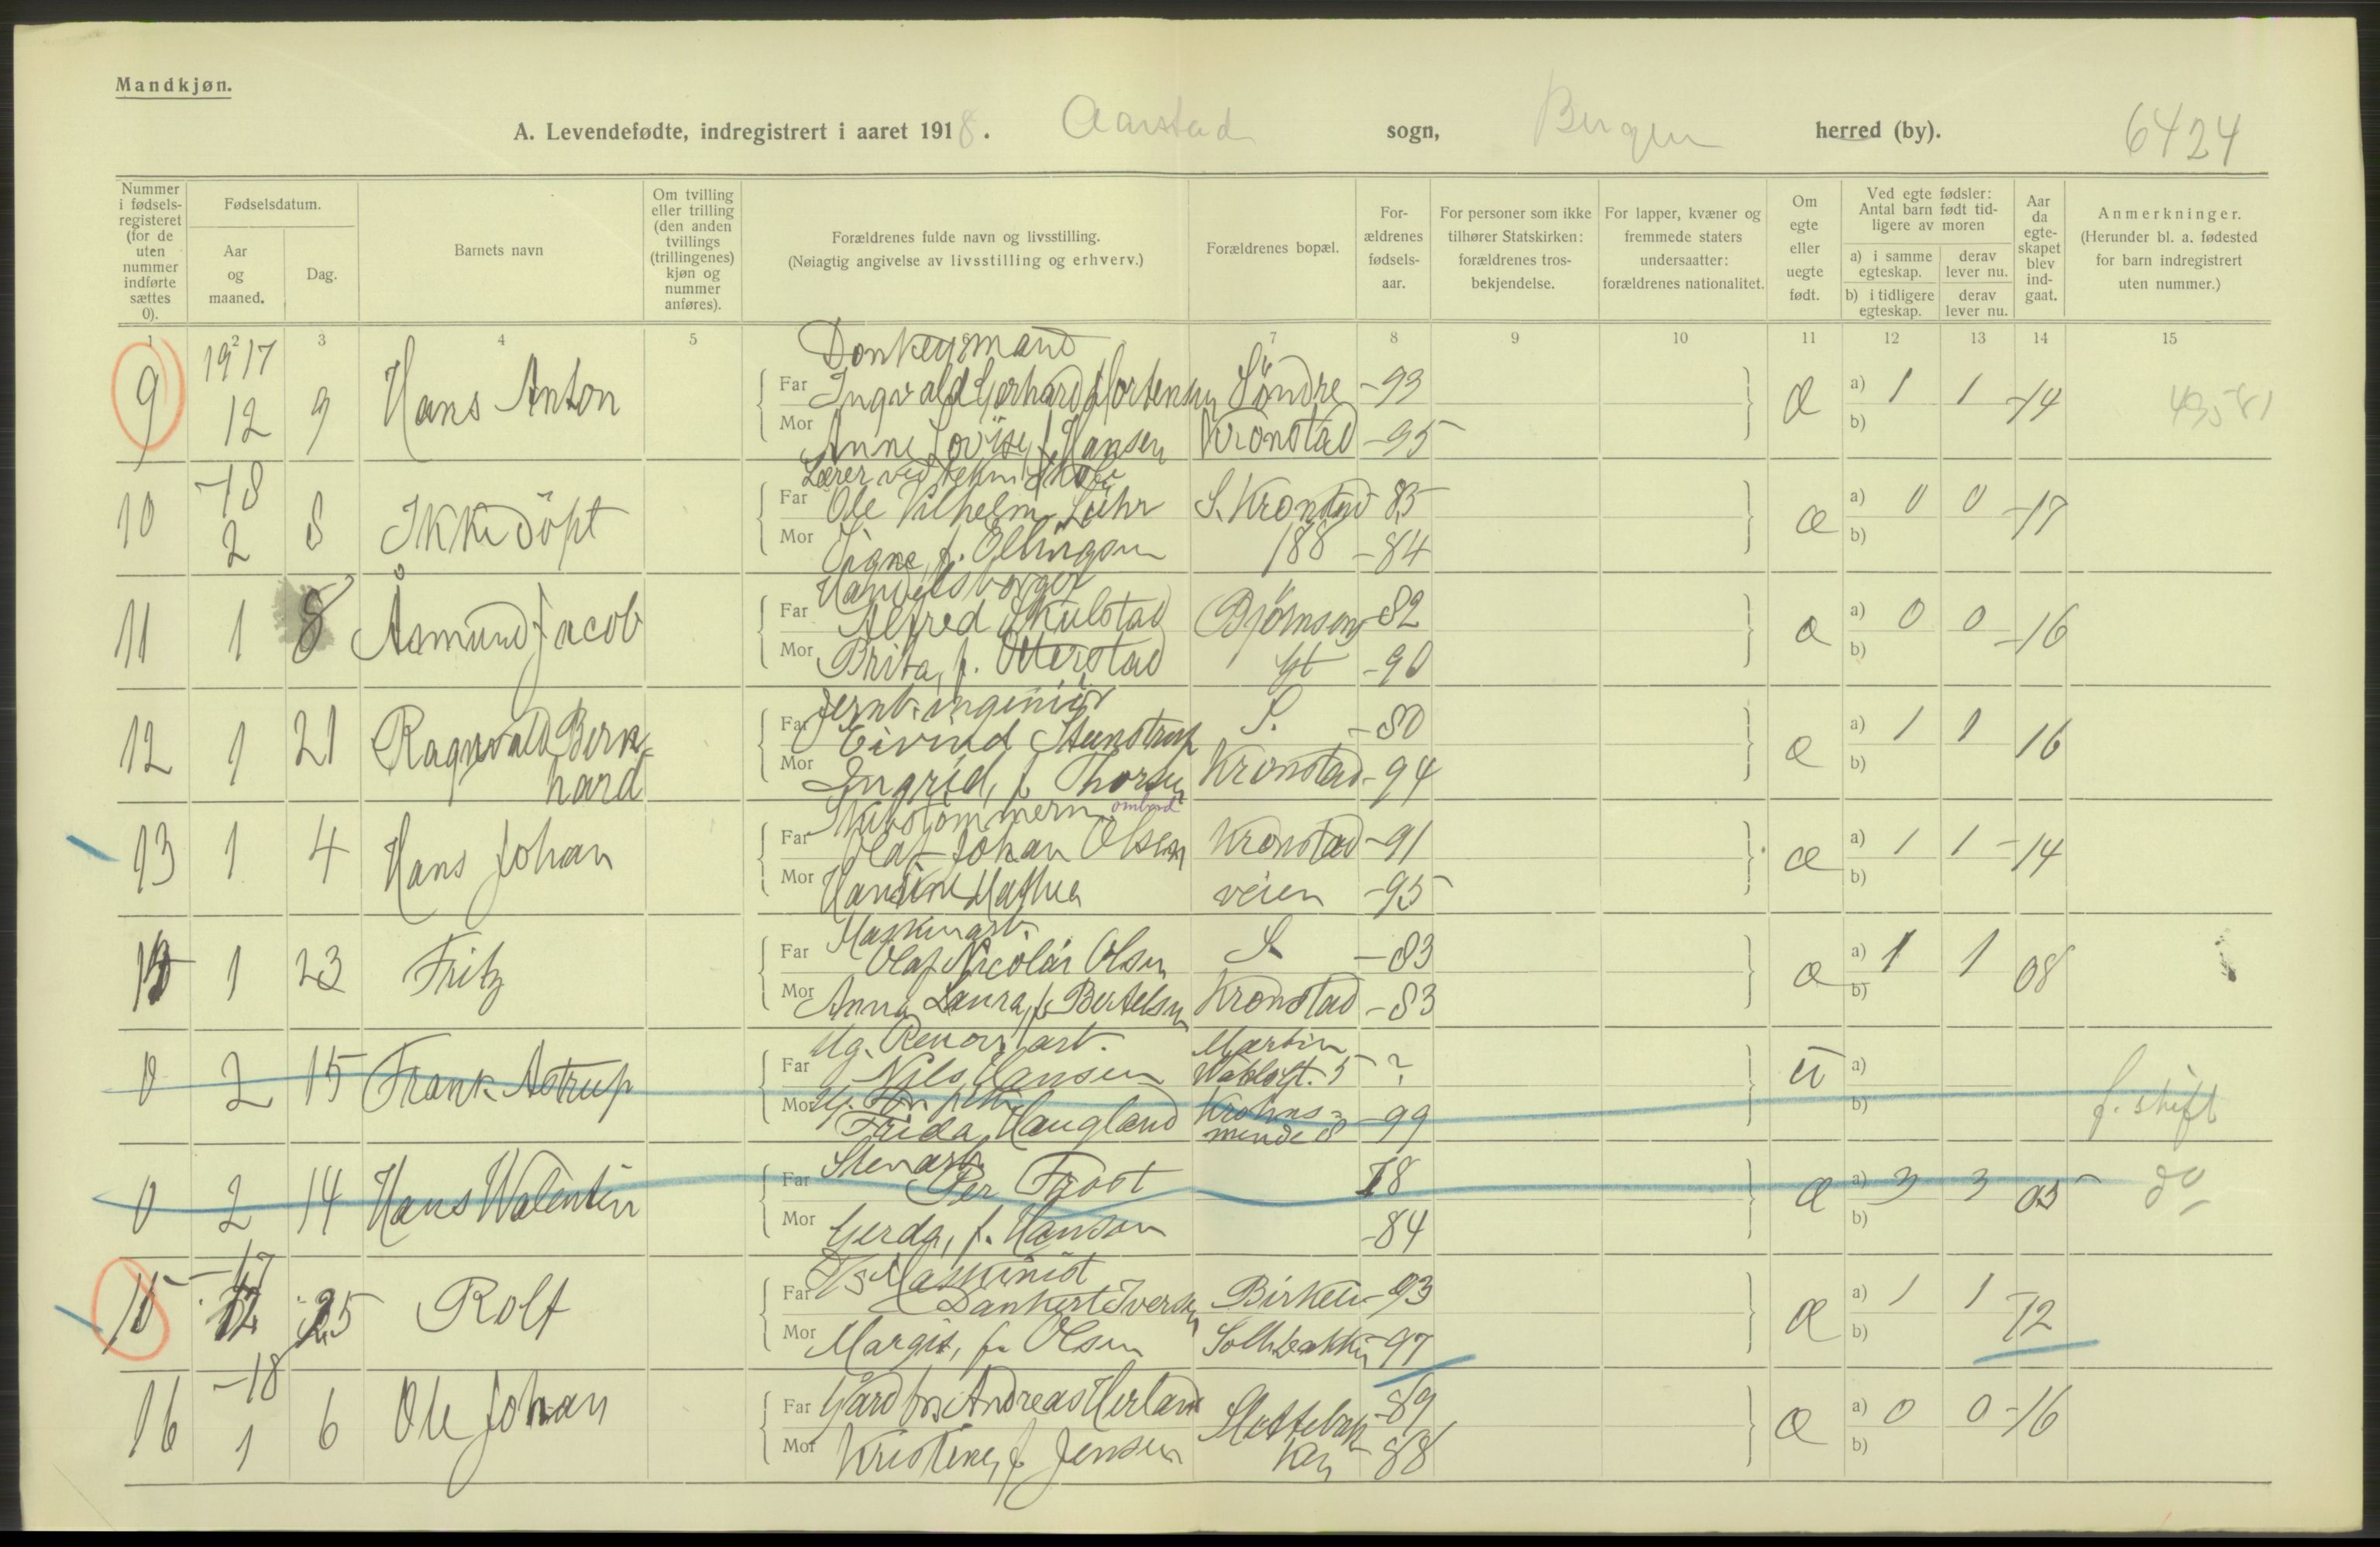 Mandkjøn.
A. Levendefødte, indregistrert i aaret 1918. Aarstad sogn, Bergen herred (by). 6424
Nummer i fødsels-registeret (for de uten nummer indførte sættes 0).
Fødselsdatum.
Aar og maaned.
Dag.
Barnets navn
Om tvilling eller trilling (den anden tvillings (trillingenes) kjøn og nummer anføres).
Forældrenes fulde navn og livsstilling.
(Nøiagtig angivelse av livsstilling og erhverv.)
Forældrenes bopæl.
For-ældrenes fødsels-aar.
For personer som ikke tilhører Statskirken: forældrenes tros-bekjendelse.
For lapper, kvæner og fremmede staters undersaatter: forældrenes nationalitet.
Om egte eller uegte født.
Ved egte fødsler: Antal barn født tid-ligere av moren
a) i samme egteskap. derav lever nu.
b) i tidligere egteskap. derav lever nu.
Aar da egte-skapet blev ind-gaat.
Anmerkninger.
(Herunder bl. a. fødested for barn indregistrert uten nummer.)
1 2 3 4 5 7 8 9 10 11 12 13 14 15
Donkeymand
9 1917 12 9 Hans Anton Far Ingvald Gerhard Mortensen Söndre -93 Æ a) 1 1 -14
Mor Anne Lovise f. Hansen Kronstad -95 b)
Lærer ved tekn. skole
10 -18 2 8 Ikke döpt Far Ole Vilhelm Lühr S. Kronstad 85 Æ a) 0 0 -17
Mor Signe, f. Ellingsen 188 -84 b)
Handelsborger
11 1 8 Åsmund Jacob Far Alfred Skulstad Björnsons -82 Æ a) 0 0 -16
Mor Brita, f. Otterstad gt -90 b)
Jernb. ingeniör
12 1 21 Ragnvald Bern-hard Far Eivind Steenstrup S. -80 Æ a) 1 1 16
Mor Ingrid, f. Thorsen Kronstad -94 b)
Skibstömmerm. ombord
13 1 4 Hans Johan Far Olaf Johan Olsen Kronstad -91 Æ a) 1 1 -14
Mor Hansine Mathea veien -95 b)
Maskinarb.
1 23 Fritz Far Olaf Nicolai Olsen S. -83 Æ a) 1 1 08
Mor Anna Laura, f. Bertelsen Kronstad -83 b)
Ug. Renov. arb. Martin
0 2 15 Frank Astrup Far Nils Hansen 5 ? U a)
Mor Ug. Frida Haugland Krohns-minde 8 -99 b) f. stift
Stenarb.
0 2 14 Hans Walentin Far Per Frost 78 Æ a) 3 3 05 do
Mor Gerda, f. Hanson -84 b)
D/S Maskinist
15 -17 12 25 Rolf Far Dankert Iversen Birkelu -93 Æ a) 1 1 -12
Mor Margit, f. Olsen Solhbakken -97 b)
16 -18 1 6 Ole Johan Far Gårdbr. Andreas Herland Slettebak- -89 Æ a) 0 0 -16
Mor Kristine, f. Jensen ken -88 b)